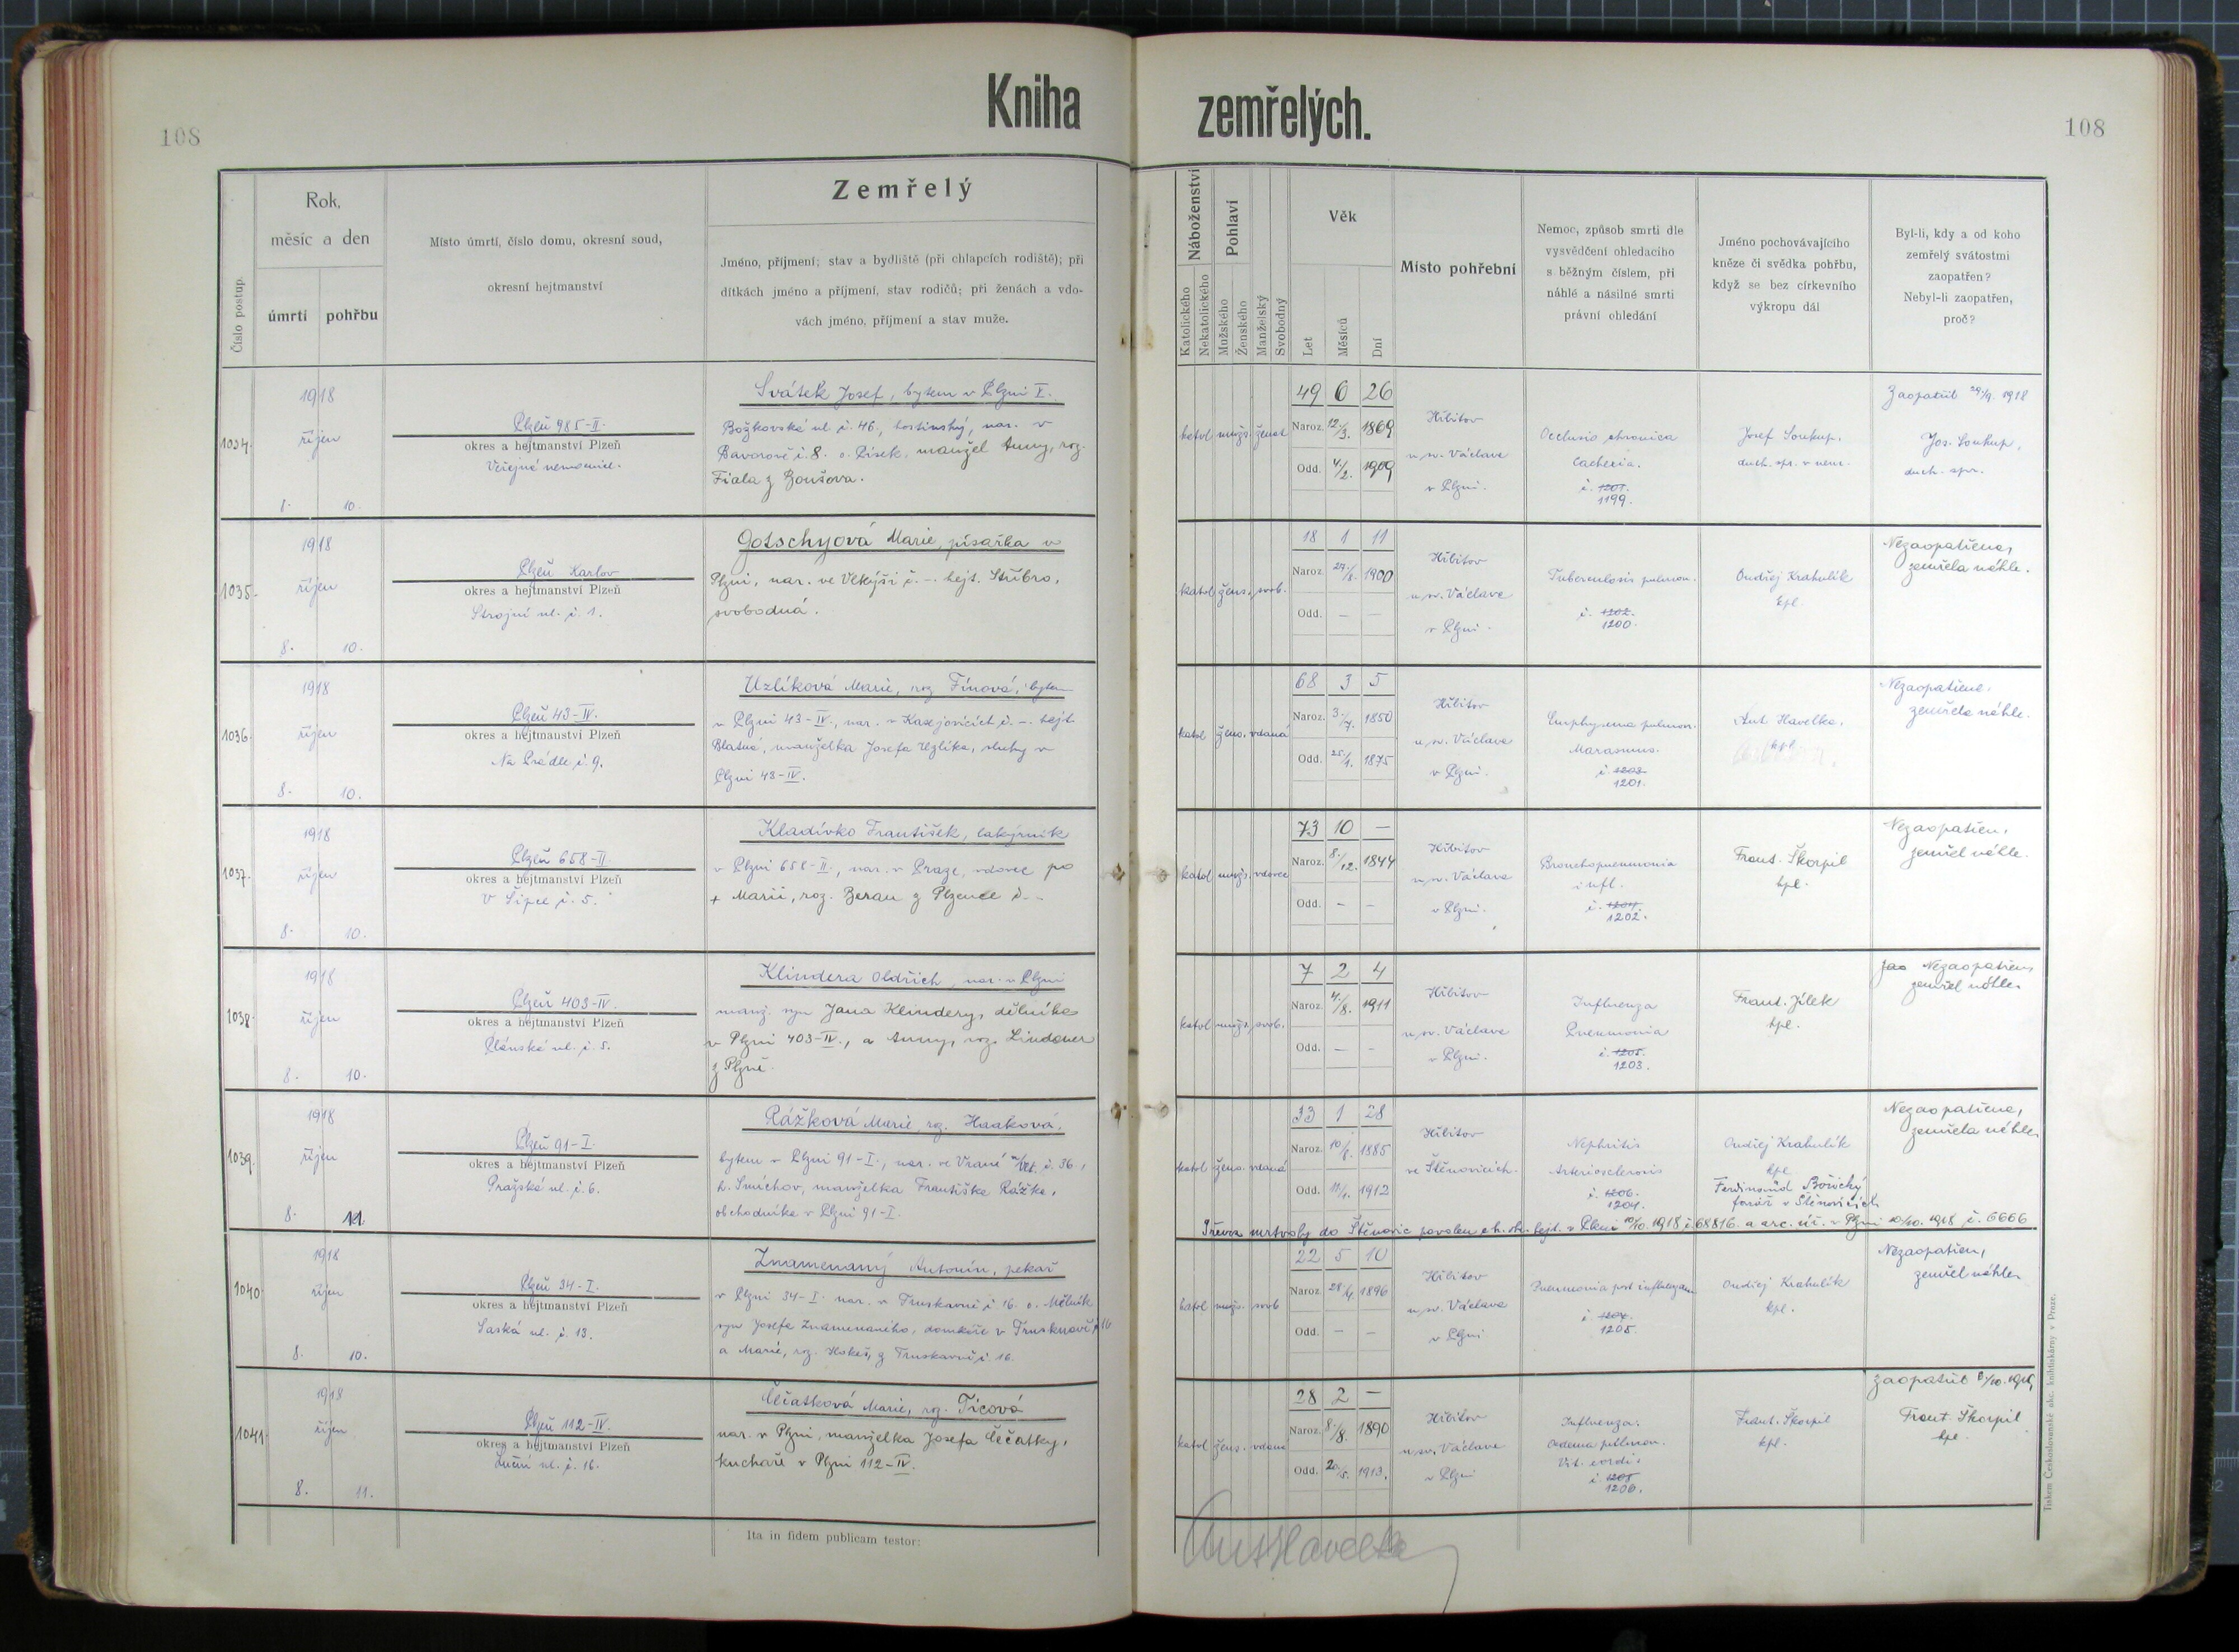 Kniha zemřelých.
108
108
Číslo postup.
Rok,
měsíc a den
úmrtí
pohřbu
Místo úmrtí, číslo domu, okresní soud,
okresní hejtmanství
Zemřelý
Jméno, příjmení; stav a bydliště (při chlapcích rodiště); při
dítkách jméno a příjmení, stav rodičů; při ženách a vdo-
vách jméno, příjmení a stav muže.
Náboženství
Katolického
Nekatolického
Pohlaví
Mužského
Ženského
Manželský
Svobodný
Věk
Let
Měsíců
Dní
Místo pohřební
Nemoc, způsob smrti dle
vysvědčení ohledacího
s běžným číslem, při
náhlé a násilné smrti
právní ohledání
Jméno pochovávajícího
kněze či svědka pohřbu,
když se bez církevního
výkropu dál
Byl-li, kdy a od koho
zemřelý svátostmi
zaopatřen?
Nebyl-li zaopatřen,
proč?
1034.
1918
říjen
8. 10.
Plzeň 985-II.
okres a hejtmanství Plzeň
Veřejná nemocnice.
Svátek Josef, bytem v Plzni X.
Božkovská ul. č. 46., hostinský, nar. v
Bavorově č. 8. o. Písek. manžel Anny, roz.
Fiala z Boušova.
katol. mužs. ženat
49 6 26
Naroz. 12./3. 1869
Odd. 4./2. 1909
Hřbitov
u sv. Václava
v Plzni.
Occlusio chronica
Cachexia.
č. 1201.
1199.
Josef Soukup.
duch. spr. v nem.
Zaopatřil 29/9. 1918
Jos. Soukup,
duch. spr.
1035.
1918
říjen
8. 10.
Plzeň Karlov
okres a hejtmanství Plzeň
Strojní ul. č. 1.
Gotschyová Marie, písařka v
Plzni, nar. ve č. -. hejt. Stříbro,
svobodná.
katol žens. svob.
18 1 11
Naroz. 27./8. 1900
Odd. — —
Hřbitov
u sv. Václava
v Plzni.
Tuberculosis pulmon.
č. 1202.
1200.
Ondřej Krahulík
kpl.
Nezaopatřena,
zemřela náhle.
1036.
1918
říjen
8. 10.
Plzeň 43-IV.
okres a hejtmanství Plzeň
Na Prádle č. 9.
Uzlíková Marie, roz Fínová, bytem
v Plzni 43-IV., nar. v Kasejovicích č. -. hejt.
Blatná, manželka Josefa Uzlíka, sluhy v
Plzni 43-IV.
katol žens. vdaná
68 3 5
Naroz. 3./7. 1850
Odd. 25./1. 1875
Hřbitov
u sv. Václava
v Plzni.
Emphysema pulmon.
Marasmus.
č. 1203
1201.
Ant Havelka,
kpl.
Nezaopatřena,
zemřela náhle.
1037.
1918
říjen
8. 10.
Plzeň 658-II.
okres a hejtmanství Plzeň
V Šipce č. 5.
Kladívko František, lakýrník
v Plzni 658-II., nar. v Praze, vdovec po
+ Marii, roz. Beran z Plzence č.-
katol mužs. vdovec
73 10 —
Naroz. 8./12. 1844
Odd. - -
Hřbitov
u sv. Václava
v Plzni.
Bronchopneumonia
infl.
č. 1204.
1202.
Frant. Škorpil
kpl.
Nezaopatřen,
zemřel náhle.
1038.
1918
říjen
8. 10.
Plzeň 403-IV.
okres a hejtmanství Plzeň
Plánská ul. č. 5.
Klindera Oldřich, nar. v Plzni
manž. syn Jana Klindery, dělníka
v Plzni 403-IV., a Anny, roz. Lindauer
z Plzně.
katol mužs. svob.
7 2 4
Naroz. 4./8. 1911
Odd. — —
Hřbitov
u sv. Václava
v Plzni.
Influenza
Pneumonia
č. 1205.
1203.
Frant. Jílek
kpl.
Nezaopatřen,
zemřel náhle.
1039.
1918
říjen
8. 11
Plzeň 91-I.
okres a hejtmanství Plzeň
Pražská ul. č. 6.
Rážková Marie, rz. Haaková,
bytem v Plzni 91-I., nar. ve Vrané n/Vlt. č. 36.,
h. Smíchov, manželka Františka Rážka,
obchodníka v Plzni 91-I.
katol žens. vdaná
33 1 28
Naroz. 10./8. 1885
Odd. 11./1. 1912
Hřbitov
ve Štěnovicích.
Nephritis
Arteriosclerosis
č. 1206.
1204.
Ondřej Krahulík
kpl.
Ferdinand Borický
farář v Štěnovicích
Nezaopatřena,
zemřela náhle
Převoz mrtvoly do Štěnovic povolen c.k. okr. hejt. v Plzni 10/10. 1918 č. 68816. a arc. úř. v Plzni 10/10. 1918 č. 6666
1040
1918
říjen
8. 10.
Plzeň 34-I.
okres a hejtmanství Plzeň
Saská ul. č. 13.
Znamenaný Antonín, pekař
v Plzni 34-I. nar. v Truskavně č 16. o. Mělník
syn Josefa Znamenaného, domkáře v Truskavně č 16
a Marie, roz. Hokeš, z Truskavně č. 16.
katol mužs. svob
22 5 10
Naroz. 28./4. 1896
Odd. — —
Hřbitov
u sv. Václava
v Plzni
Pneumonia post influenzam
č. 1207.
1205.
Ondřej Krahulík
kpl.
Nezaopatřen,
zemřel náhle
1041.
1918
říjen
8. 11.
Plzeň 112-IV.
okres a hejtmanství Plzeň
Luční ul. č. 16.
Čečatková Marie, rz. Ticová
nar. v Plzni, manželka Josefa Čečatky,
kuchaře v Plzni 112-IV.
katol žens. vdaná
28 2 —
Naroz. 8./8. 1890
Odd. 20./5. 1913.
Hřbitov
u sv. Václava
v Plzni
Influenza.
Oedema pulmon.
Vit. cordis
č. 1208
1206.
Frant. Škorpil
kpl.
Zaopatřil 8/10. 1918,
Frant. Škorpil
kpl.
Ita in fidem publicam testor:
Ant Havelka
Tiskem Československé akc. knihtiskárny v Praze.